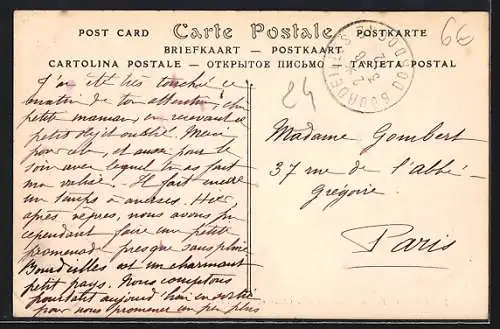 POST CARD Carte Postale POSTKARTE
BRIEFKAART — POSTKAART
CARTOLINA POSTALE — ОТКРЫТОЕ ПИСЬМО — TARJETA POSTAL
6€
24
BOURDEILLES
J'ai été très touché ce
matin de ton attention, chère
petite maman, en recevant ce
petit objet oublié. Merci
pour cela, et aussi pour le
soin avec lequel tu as fait
ma valise. Il fait
un temps à averses. Hier,
après vêpres, nous avons pu
cependant faire une petite
promenade presque sans pluie.
Bourdeilles est un charmant
petit pays. Nous comptons
pourtant aujourd'hui
pour nous promener un peu plus
Madame Gombert
37 rue de l'abbé-
Grégoire
Paris